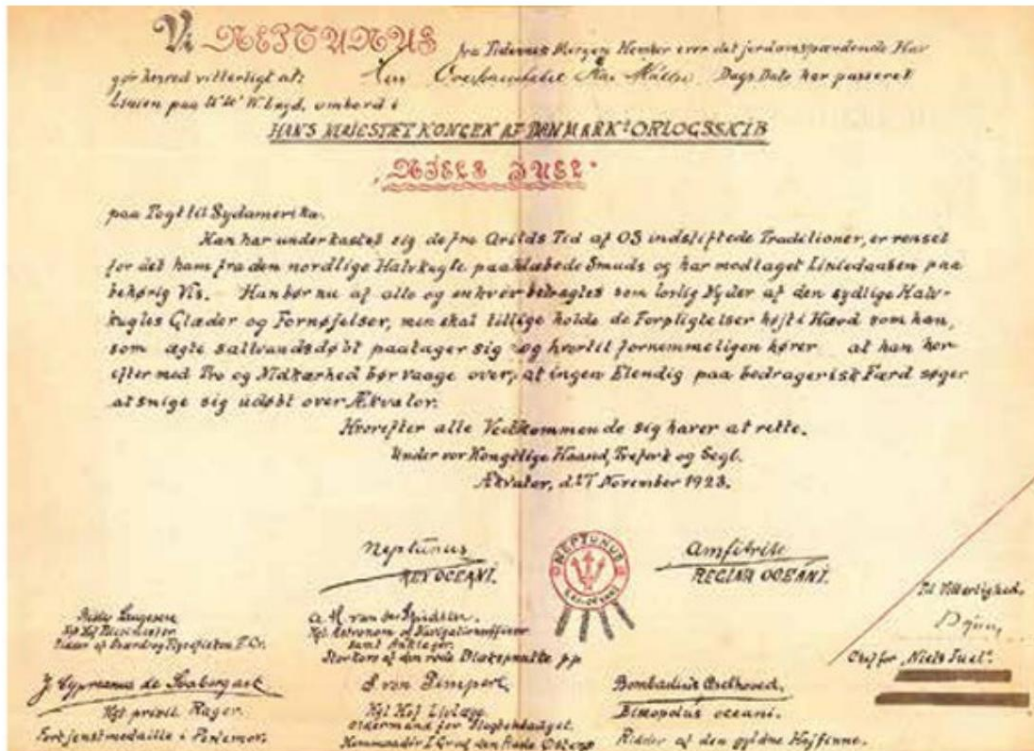 Vi NEPTUNUS fra Tidernes Morgen Hersker over det jordomspændende Hav
gør herved vitterligt at: Dags Dato har passeret
Linien paa Lgd, ombord i
HANS MAJESTÆT KONGEN AF DANMARK'S ORLOGSSKIB
„NIELS JUEL"
paa Togt til Sydamerika.
Han har underkastet sig de fra Arilds Tid af OS indstiftede Traditioner, er renset
for det ham fra den nordlige Halvkugle paaklæbede Smuds og har modtaget Liniedaaben paa
behørig Vis. — Han bør nu af alle og enhver betragtes som lovlig Nyder af den sydlige Halv-
kugles Glæder og Fornøjelser, men skal tillige holde de Forpligtelser højt i Hævd som han,
som ægte saltvandsdøbt paatager sig og hvortil fornemmeligen hører at han her
efter med Tro og Nidkærhed bør vaage over, at ingen Elendig paa bedragerisk Færd søger
at snige sig udøbt over Ækvator.
Hvorefter alle Vedkommende sig haver at rette.
Under vor Kongelige Haand, Trefork og Segl.
Ækvator, d. 27 November 1923.
Neptunus
REX OCEANI.
NEPTUNUS
Amfitrite
REGINA OCEANI.
Til Vitterlighed.
Chef for „Niels Juel".
Kgl Hof
Ridder af
A. M. van der
Kgl. Astronom og Navigationsofficer
samt Anklager.
Storkors af den røde Blæksprutte p.p
J. Cypreanus de
Kgl. privil. Rager.
Fortjenstmedaille i Perlemor.
S von Pimpert
Kgl Hof Livlæge
Oldermand for
Kommandør I Grad af den Røde
Bombadius
Biscopolus oceani.
Ridder af den gyldne Hajfinne.